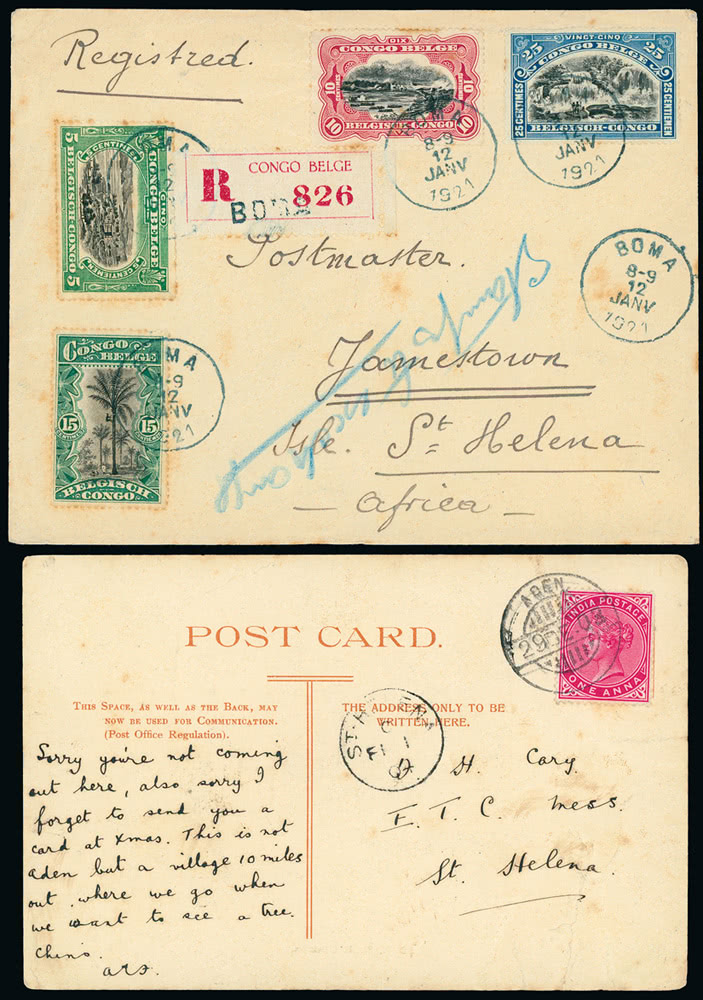 Registred.
DIX
CONGO BELGE
10 10
CENTIMES
10 10
BELGISCH-CONGO
VINGT-CINQ
25 25
CONGO BELGE
25 CENTIMES 25 CENTIEMEN
BELGISCH-CONGO
BOMA
8-9
12
JANV
1921
JANV
1921
5 BELGISCH-CONGO 5
5 CENTIEMEN
CONGO BELGE
CINQ
BOMA
CONGO BELGE
R 826
BOMA
Postmaster.
BOMA
8-9
12
JANV
1921
Jamestown
Isle. St Helena
- Africa -
CONGO
BELGE
15 15
BELGISCH
CONGO
BOMA
8-9
12
JANV
1921
POST CARD.
ADEN
INDIA POSTAGE
ONE ANNA
THIS SPACE, AS WELL AS THE BACK, MAY
NOW BE USED FOR COMMUNICATION.
(Post Office Regulation).
THE ADDRESS ONLY TO BE
WRITTEN HERE.
ST. HELENA
Sorry you're not coming
out here, also sorry I
forget to send you a
card at Xmas. This is not
Aden but a village 10 miles
out where we go when
we want to see a tree.
H. Cary
E. T. C. Mess.
St. Helena.